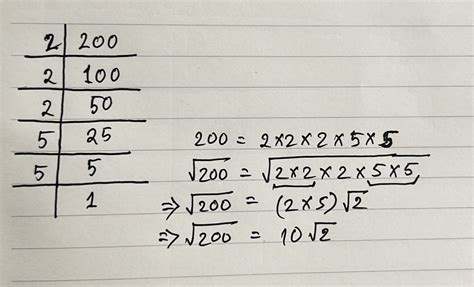 2 | 200
2 | 100
2 | 50
5 | 25
5 | 5
1
200 = 2×2×2×5×5
√200 = √2×2×2×5×5
⇒ √200 = (2×5)√2
⇒ √200 = 10√2